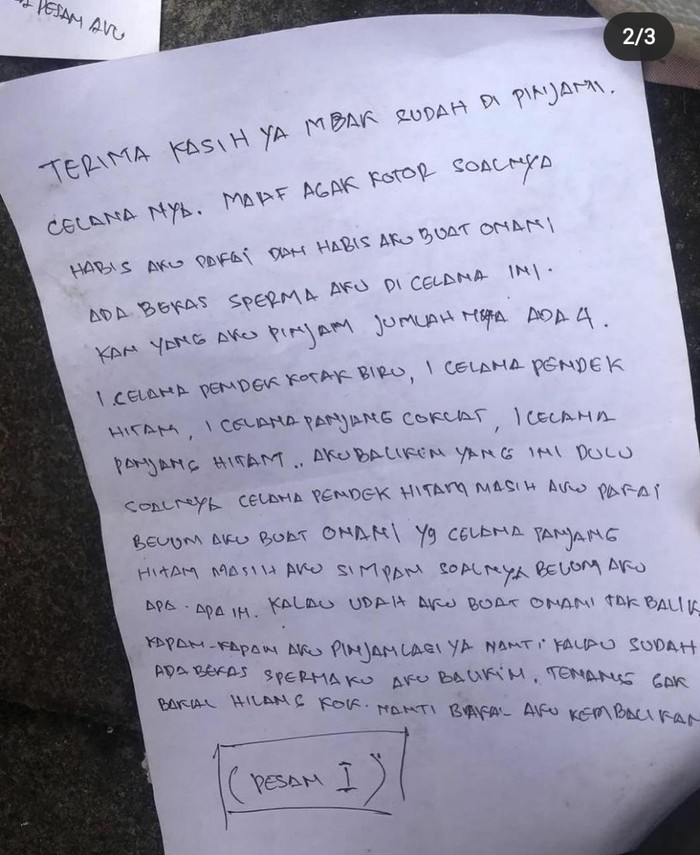 PESAM AKU
2/3
TERIMA KASIH YA MBAK SUDAH DI PINJAMI.
CELANA NYA. MAAF AGAK KOTOR SOALNYA
HABIS AKU PAKAI DAN HABIS AKU BUAT ONANI
ADA BEKAS SPERMA AKU DI CELANA INI.
KAN YANG AKU PINJAM JUMLAH NYA ADA 4.
1 CELANA PENDEK KOTAK BIRU, 1 CELANA PENDEK
HITAM, 1 CELANA PANJANG COKLAT, 1 CELANA
PANJANG HITAM.. AKU BALIKIN YANG INI DULU
SOALNYA CELANA PENDEK HITAM MASIH AKU PAKAI
BELUM AKU BUAT ONANI Yg CELANA PANJANG
HITAM MASIH AKU SIMPAN SOALNYA BELUM AKU
APA-APA IN. KALAU UDAH AKU BUAT ONANI TAK BALIK
KAPAN-KAPAN AKU PINJAM LAGI YA NANTI KALAU SUDAH
ADA BEKAS SPERMAKU AKU BALIKIN. TENANG GAK
BAKAL HILANG KOK. NANTI BAKAL AKU KEMBALIKAN
(PESAM I)